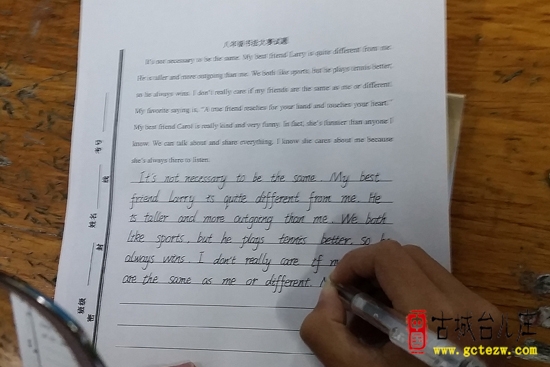 八年级书语文赛试题
It's not necessary to be the same. My best friend Larry is quite different from me.
He is taller and more outgoing than me. We both like sports. But he plays tennis better,
so he always wins. I don't really care if my friends are the same as me or different.
My favorite saying is, "A true friend reaches for your hand and touches your heart."
My best friend Carol is really kind and very funny. In fact, she's funnier than anyone I
know. We can talk about and share everything. I know she cares about me because
she's always there to listen.
It's not necessary to be the same. My best
friend Larry is quite different from me. He
is taller and more outgoing than me. We both
like sports, but he plays tennis better, so
always wins. I don't really care if m
are the same as me or different.
考号
姓名
班级
线
封
密
古城台儿庄
www.gctezw.com